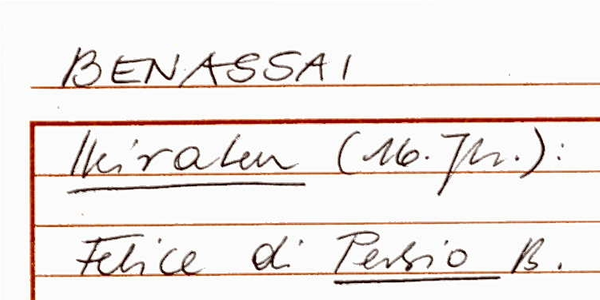 BENASSAI
Literaten (16. Jh.):
Felice di Persio B.